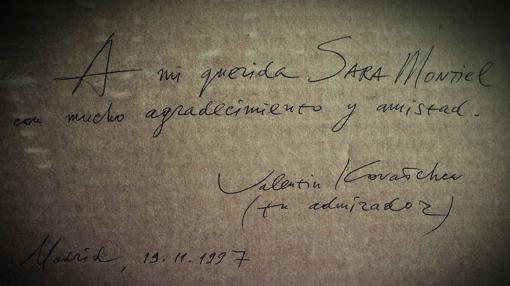 A mi querida SARA Montiel
con mucho agradecimiento y amistad.
Valentin Kovatchev
(tu admirador)
Madrid, 19.11.1997